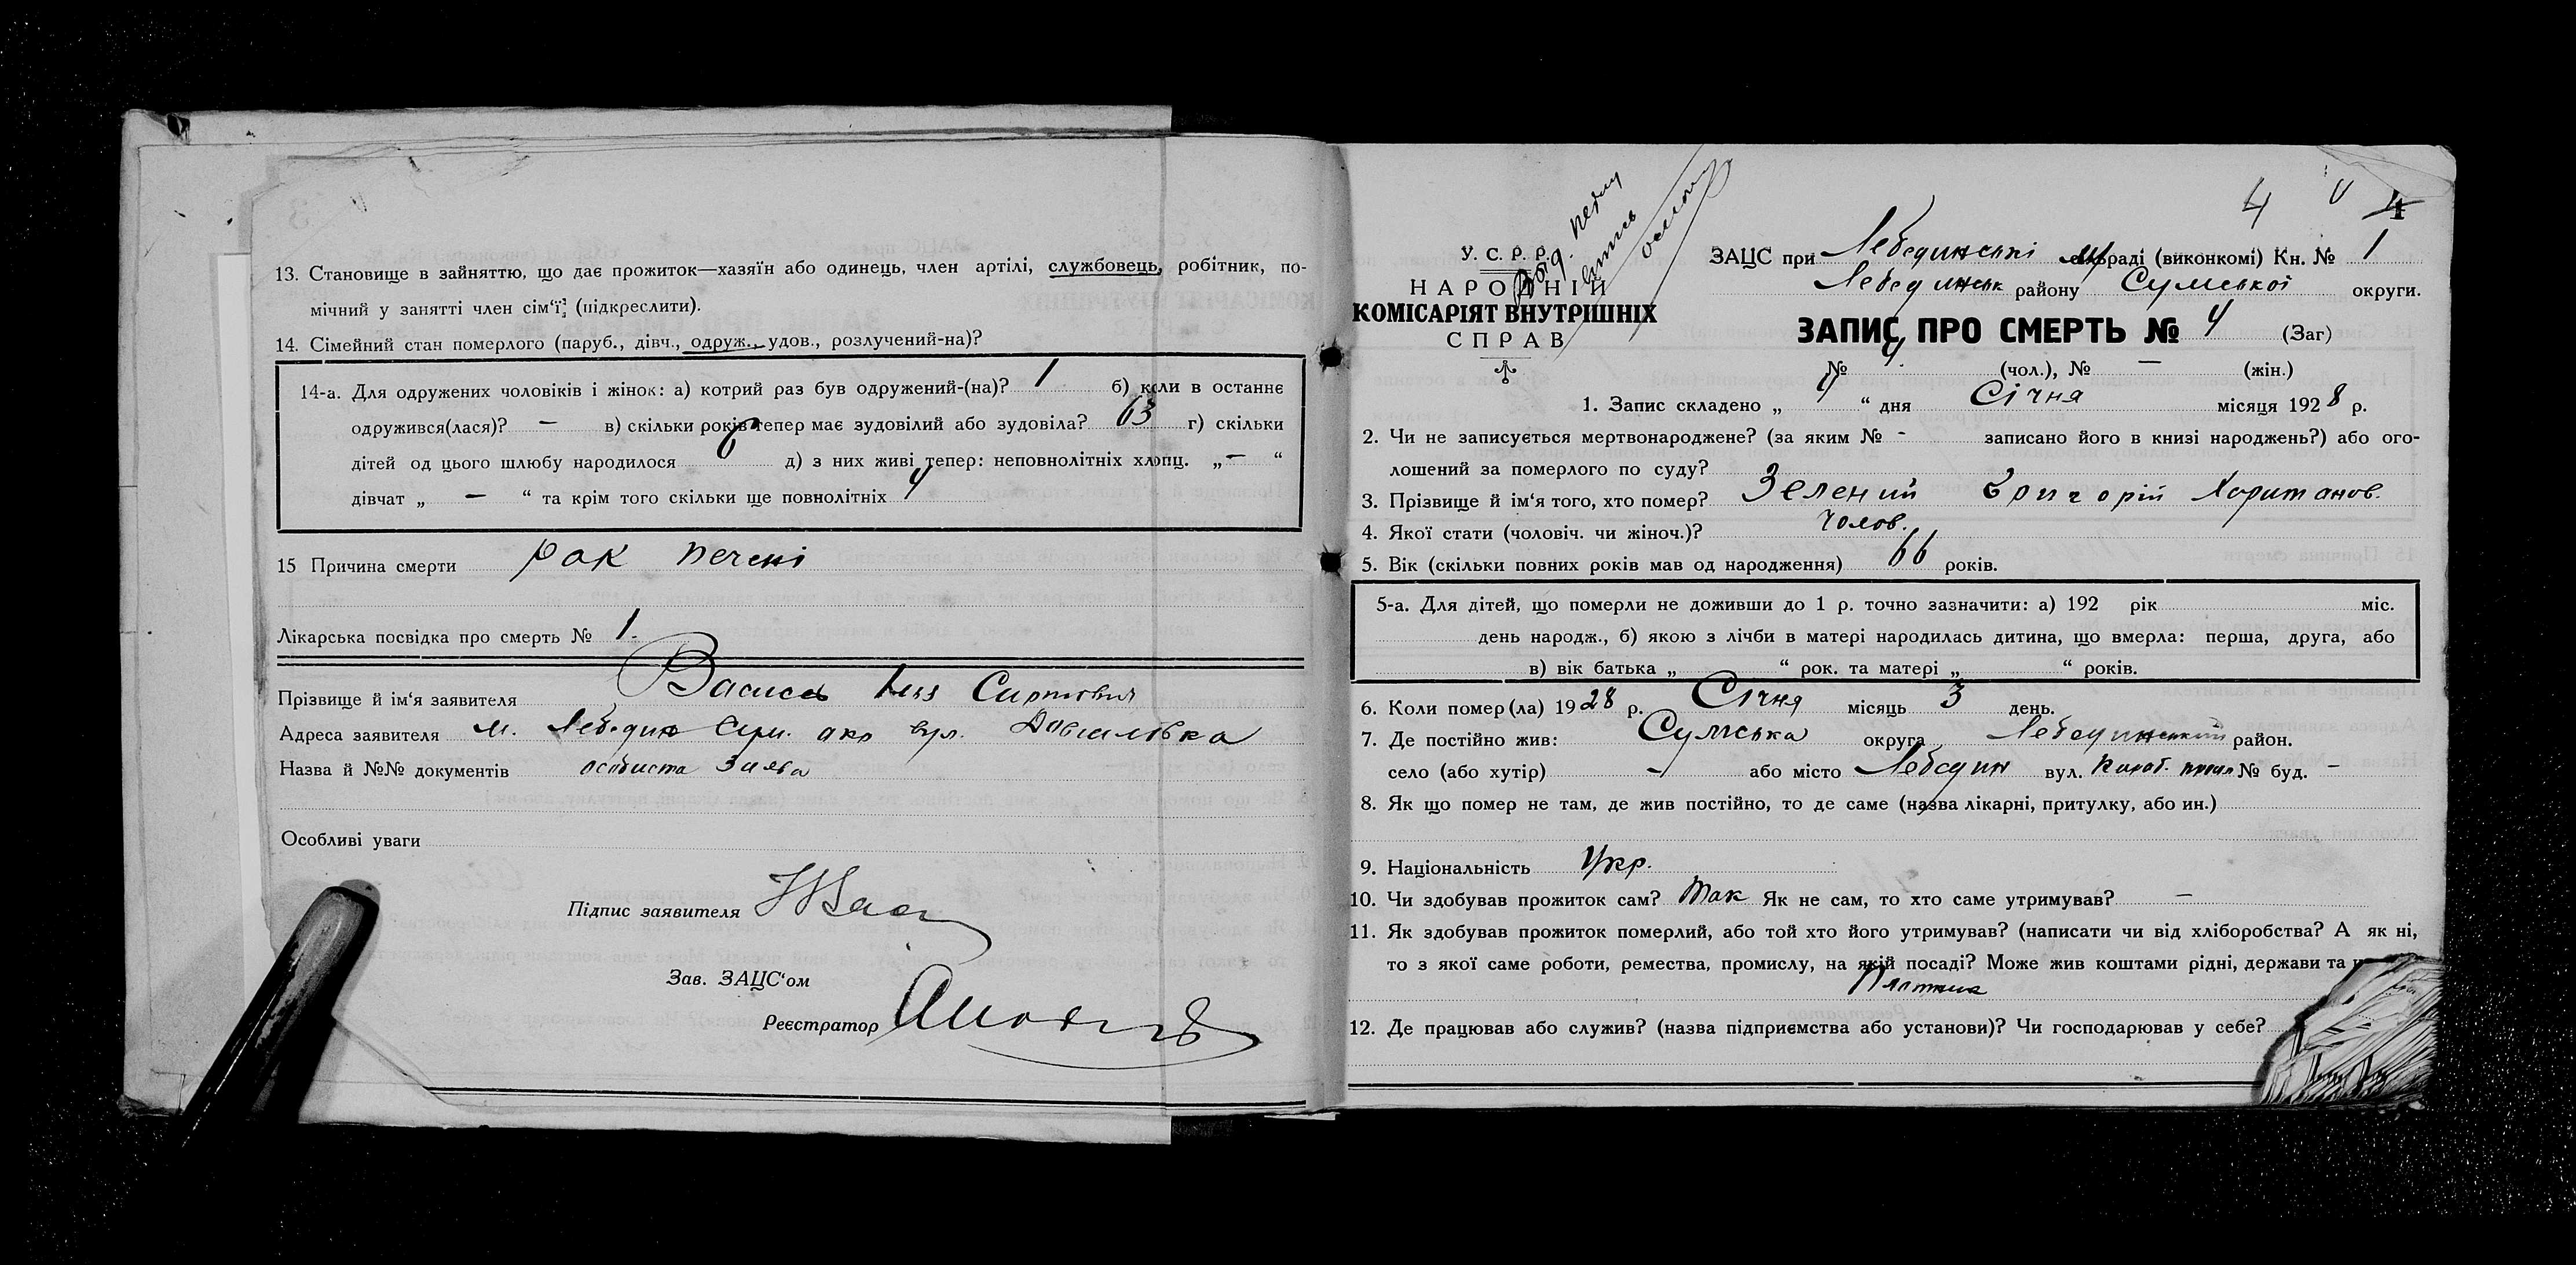 13. Становище в зайняттю, що дає прожиток—хазяїн або одинець, член артілі, службовець, робітник, по-
мічний у занятті член сім'ї; (підкреслити).
14. Сімейний стан померлого (паруб., дівч., одруж., удов., розлучений-на)?
14-а. Для одружених чоловіків і жінок: а) котрий раз був одружений-(на)? 1 б) коли в останнє
одружився(лася)? — в) скільки років тепер має зудовілий або зудовіла? 63 г) скільки
дітей од цього шлюбу народилося 6 д) з них живі тепер: неповнолітніх хлопц. „ — “
дівчат „ — “ та крім того скільки ще повнолітніх 4
15 Причина смерти рак печені
Лікарська посвідка про смерть № 1.
Прізвище й ім'я заявителя
Адреса заявителя м. Лебедин Сум. окр вул.
Назва й №№ документів особиста заява
Особливі уваги
Підпис заявителя
Зав. ЗАЦС'ом
Реєстратор
4 4
У. С. Р. Р.
НАРОДНІЙ
КОМІСАРІЯТ ВНУТРІШНІХ
СПРАВ
ЗАЦС при Лебединські раді (виконкомі) Кн. № 1
Лебединськ району Сумської округи.
ЗАПИС ПРО СМЕРТЬ № 4 (Заг)
№ 4 (чол.), № — (жін.)
1. Запис складено „ 4 “ дня Січня місяця 1928 р.
2. Чи не записується мертвонароджене? (за яким № - записано його в книзі народжень?) або ого-
лошений за померлого по суду?
3. Прізвище й ім'я того, хто помер? Зелений Григорій Хаританов.
4. Якої стати (чоловіч. чи жіноч.)? чолов.
5. Вік (скільки повних років мав од народження) 66 років.
5-а. Для дітей, що померли не доживши до 1 р. точно зазначити: а) 192 рік міс.
день народж., б) якою з лічби в матері народилась дитина, що вмерла: перша, друга, або
в) вік батька „ “ рок. та матері „ “ років.
6. Коли помер(ла) 1928 р. Січня місяць 3 день.
7. Де постійно жив: Сумська округа Лебединський район.
село (або хутір) - або місто Лебедин вул. № буд. -
8. Як що помер не там, де жив постійно, то де саме (назва лікарні, притулку, або ин.)
9. Національність Укр.
10. Чи здобував прожиток сам? Так Як не сам, то хто саме утримував? —
11. Як здобував прожиток померлий, або той хто його утримував? (написати чи від хліборобства? А як ні,
то з якої саме роботи, ремества, промислу, на якій посаді? Може жив коштами рідні, держави та
12. Де працював або служив? (назва підприємства або установи)? Чи господарював у себе?